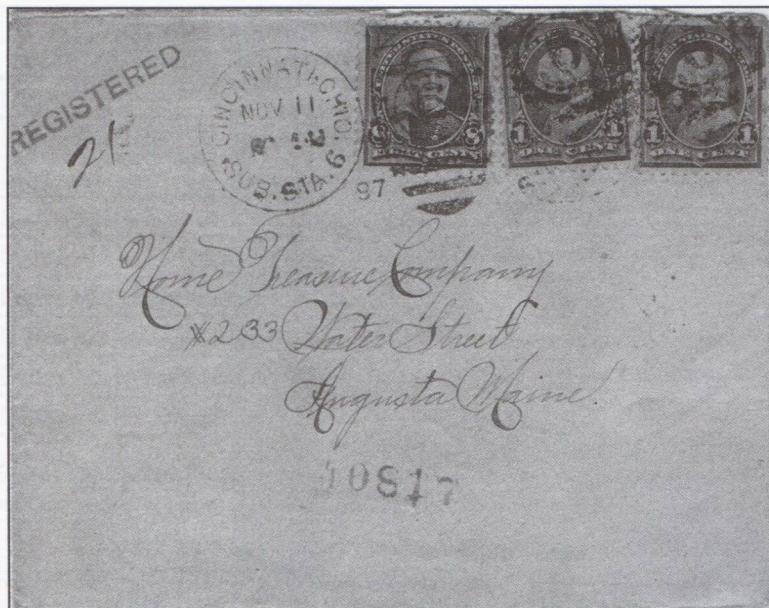 REGISTERED
21
CINCINNATI, OHIO.
NOV 11
SUB. STA. 6
97
8 8
EIGHT CENTS
1 1
ONE CENT
1 1
ONE CENT
Home Treasure Company
#233 Water Street
Augusta Maine
10817